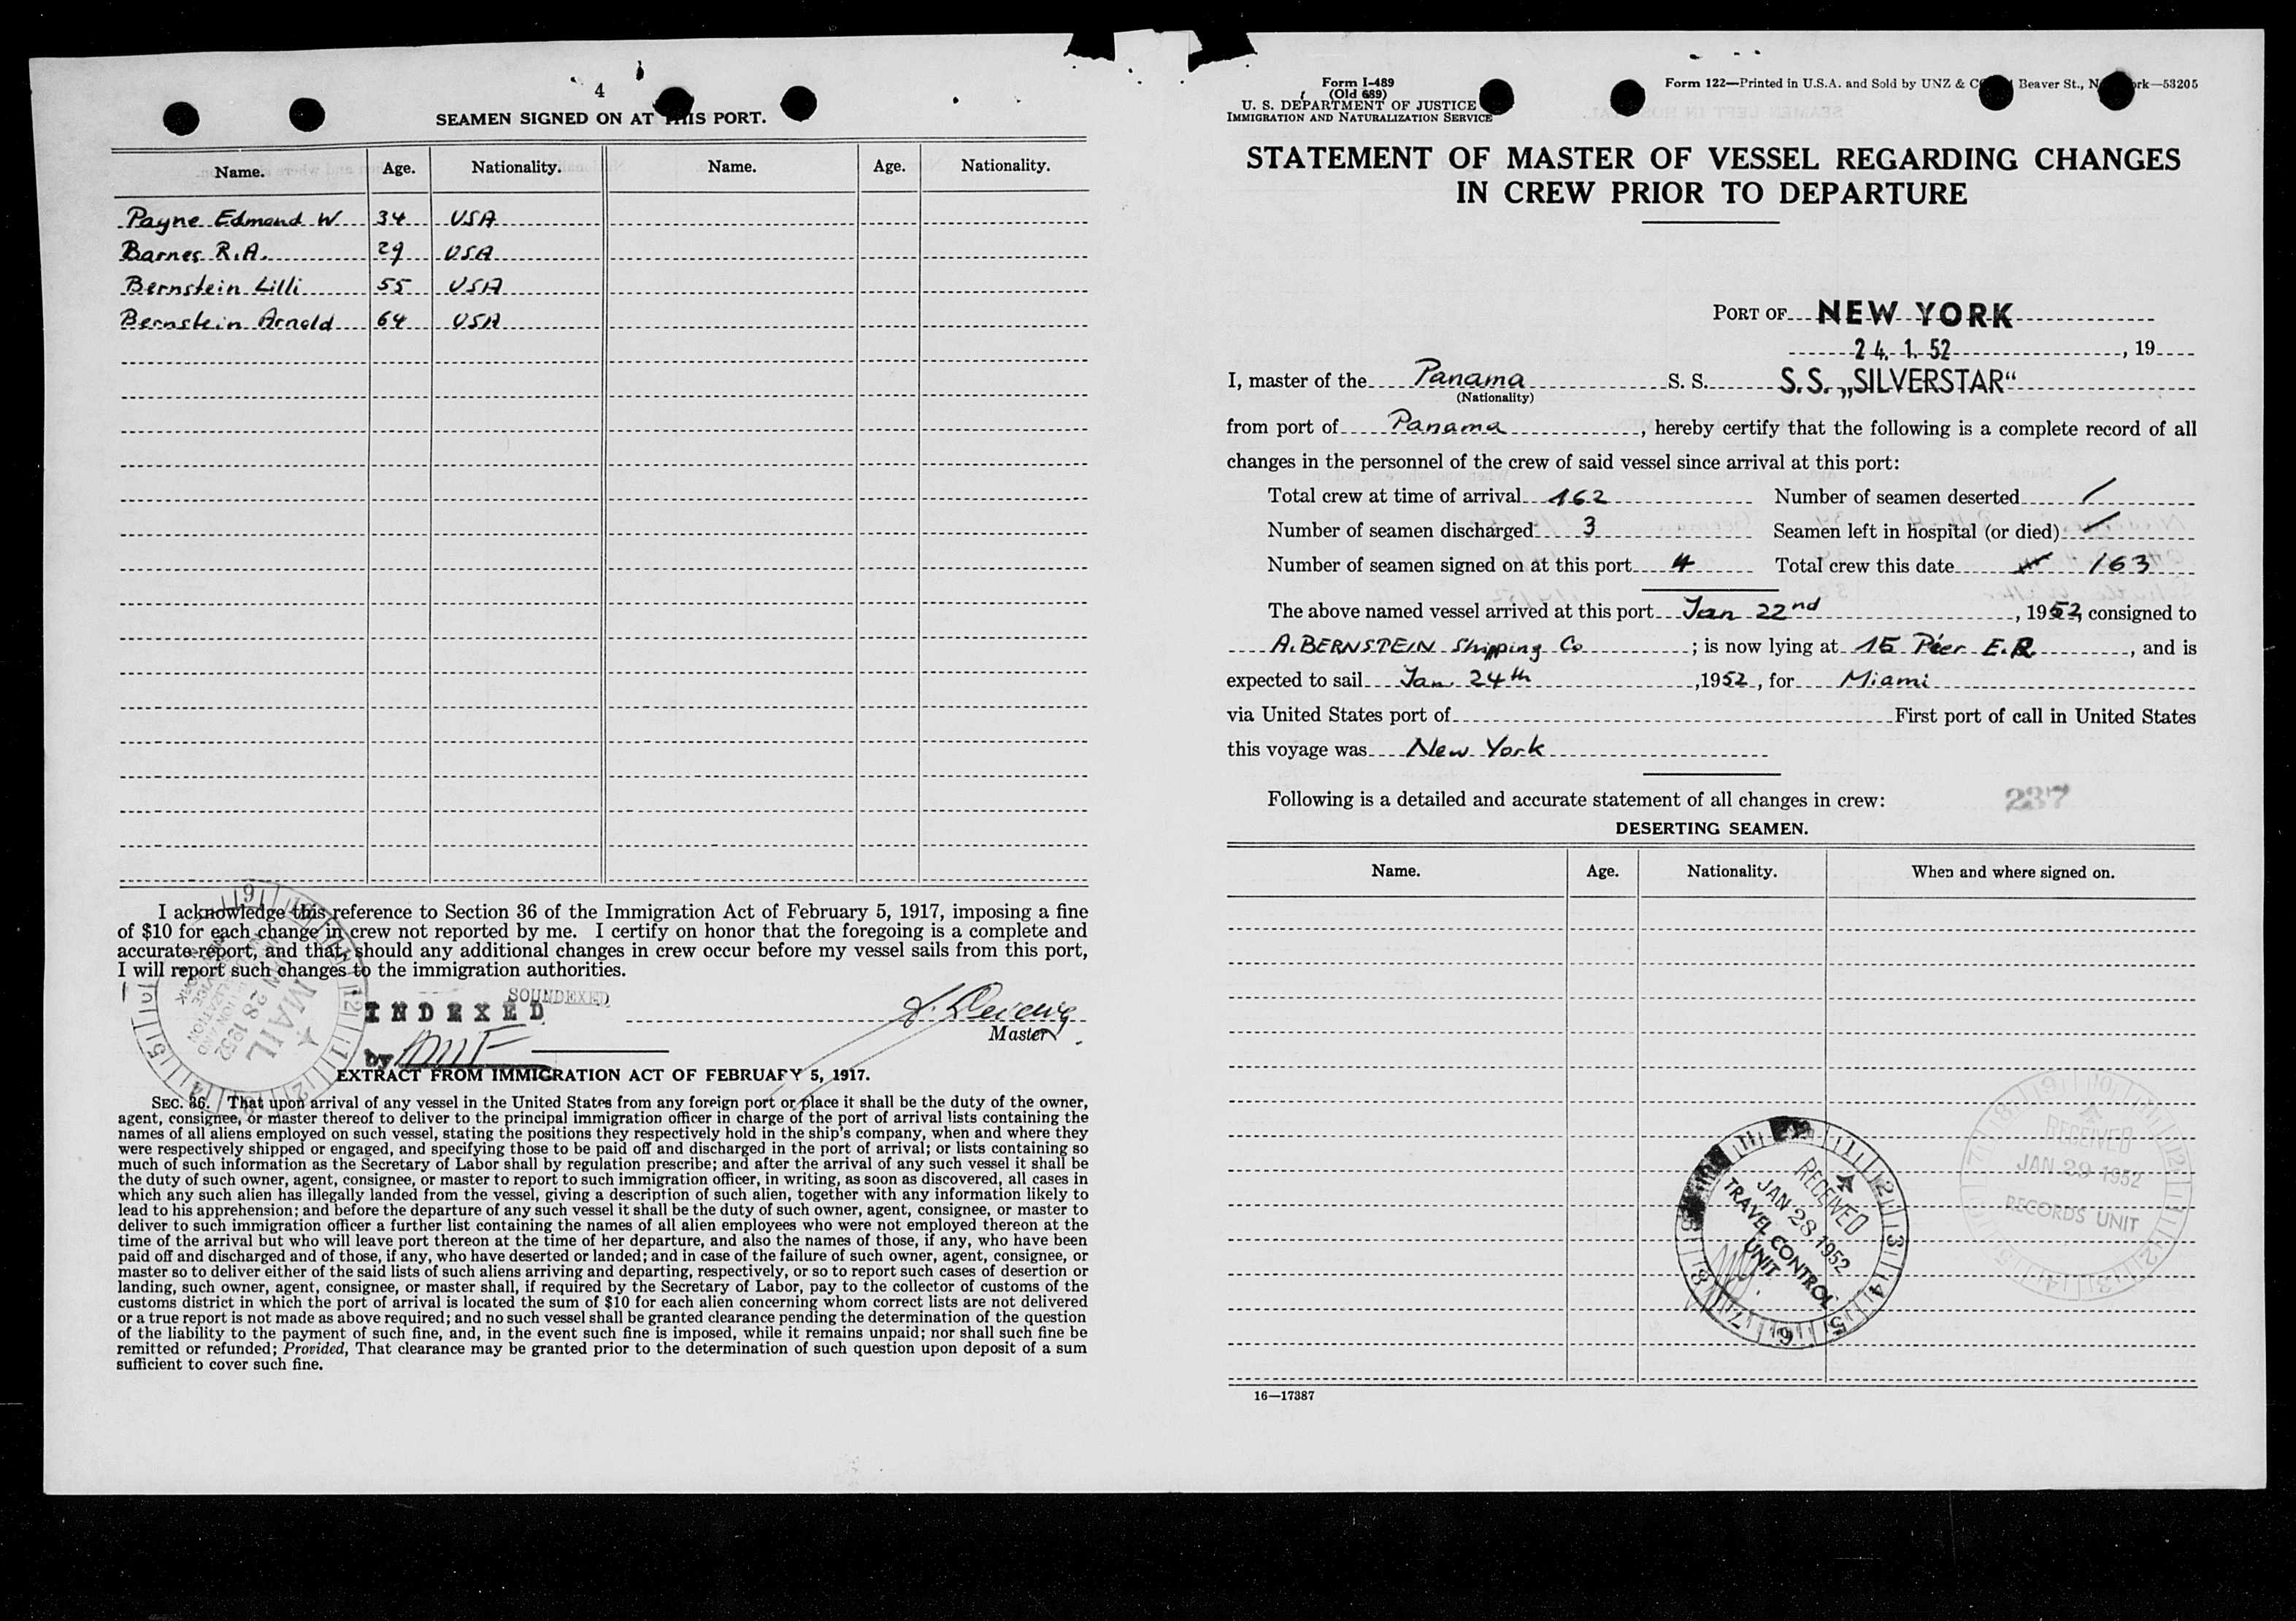 4
SEAMEN SIGNED ON AT THIS PORT.
Name. Age. Nationality. Name. Age. Nationality.
Payne Edmond W 34 USA
Barnes R.A. 29 USA
Bernstein Lilli 55 USA
Bernstein Arnold 64 USA
I acknowledge this reference to Section 36 of the Immigration Act of February 5, 1917, imposing a fine
of $10 for each change in crew not reported by me. I certify on honor that the foregoing is a complete and
accurate report, and that, should any additional changes in crew occur before my vessel sails from this port,
I will report such changes to the immigration authorities.
MAIL
JAN 28 1952
SOUNDEXED
INDEXED
by
Master
EXTRACT FROM IMMIGRATION ACT OF FEBRUARY 5, 1917.
SEC. 36. That upon arrival of any vessel in the United States from any foreign port or place it shall be the duty of the owner,
agent, consignee, or master thereof to deliver to the principal immigration officer in charge of the port of arrival lists containing the
names of all aliens employed on such vessel, stating the positions they respectively hold in the ship's company, when and where they
were respectively shipped or engaged, and specifying those to be paid off and discharged in the port of arrival; or lists containing so
much of such information as the Secretary of Labor shall by regulation prescribe; and after the arrival of any such vessel it shall be
the duty of such owner, agent, consignee, or master to report to such immigration officer, in writing, as soon as discovered, all cases in
which any such alien has illegally landed from the vessel, giving a description of such alien, together with any information likely to
lead to his apprehension; and before the departure of any such vessel it shall be the duty of such owner, agent, consignee, or master to
deliver to such immigration officer a further list containing the names of all alien employees who were not employed thereon at the
time of the arrival but who will leave port thereon at the time of her departure, and also the names of those, if any, who have been
paid off and discharged and of those, if any, who have deserted or landed; and in case of the failure of such owner, agent, consignee, or
master so to deliver either of the said lists of such aliens arriving and departing, respectively, or so to report such cases of desertion or
landing, such owner, agent, consignee, or master shall, if required by the Secretary of Labor, pay to the collector of customs of the
customs district in which the port of arrival is located the sum of $10 for each alien concerning whom correct lists are not delivered
or a true report is not made as above required; and no such vessel shall be granted clearance pending the determination of the question
of the liability to the payment of such fine, and, in the event such fine is imposed, while it remains unpaid; nor shall such fine be
remitted or refunded; Provided, That clearance may be granted prior to the determination of such question upon deposit of a sum
sufficient to cover such fine.
Form I-489
(Old 689)
U. S. DEPARTMENT OF JUSTICE
IMMIGRATION AND NATURALIZATION SERVICE
Form 122—Printed in U.S.A. and Sold by UNZ & Beaver St., 53205
STATEMENT OF MASTER OF VESSEL REGARDING CHANGES
IN CREW PRIOR TO DEPARTURE
PORT OF NEW YORK
24. 1. 52, 19
I, master of the Panama S. S. S.S. „SILVERSTAR“
(Nationality)
from port of Panama, hereby certify that the following is a complete record of all
changes in the personnel of the crew of said vessel since arrival at this port:
Total crew at time of arrival 162 Number of seamen deserted /
Number of seamen discharged 3 Seamen left in hospital (or died) /
Number of seamen signed on at this port 4 Total crew this date 163
The above named vessel arrived at this port Jan 22nd, 1952, consigned to
A. BERNSTEIN Shipping Co; is now lying at 15 Pier E.R., and is
expected to sail Jan. 24th, 1952, for Miami
via United States port of First port of call in United States
this voyage was New York
Following is a detailed and accurate statement of all changes in crew:
237
DESERTING SEAMEN.
Name. Age. Nationality. When and where signed on.
RECEIVED
JAN 28 1952
TRAVEL CONTROL
UNIT
RECEIVED
JAN 29 1952
RECORDS UNIT
16—17387